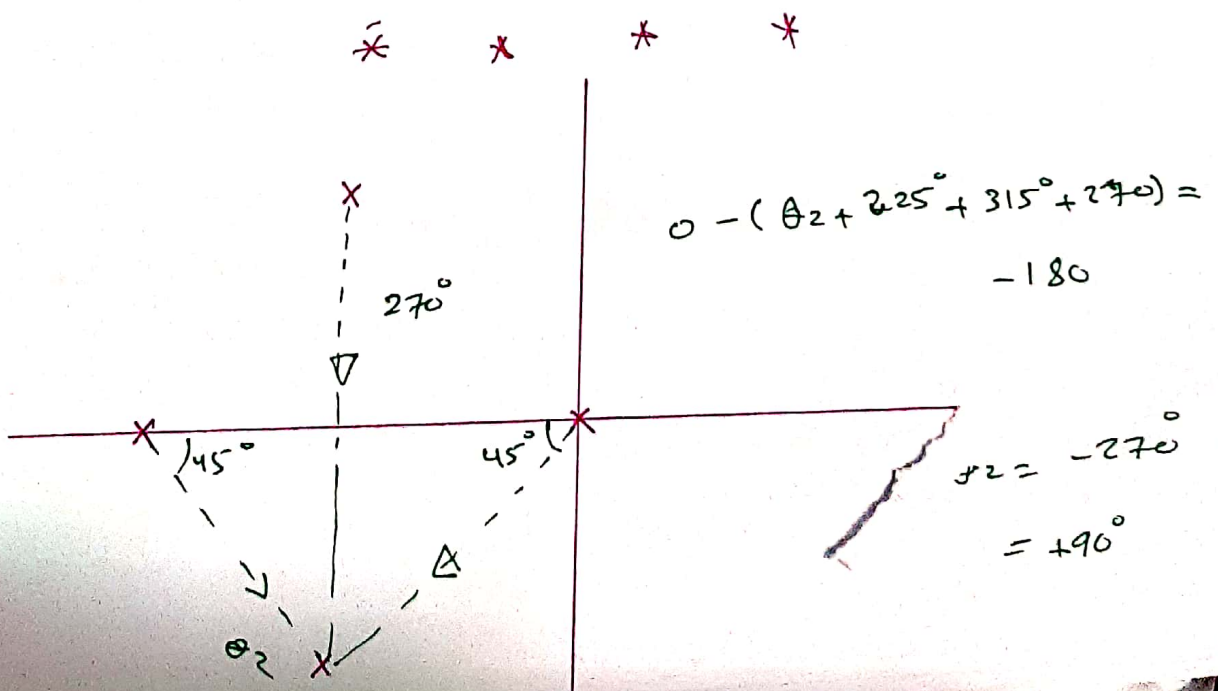 * * * *
x
0 - ( θ2 + 225° + 315° + 270) =
- 180
270°
x x
45° 45°
= -270°
= +90°
θ2 x